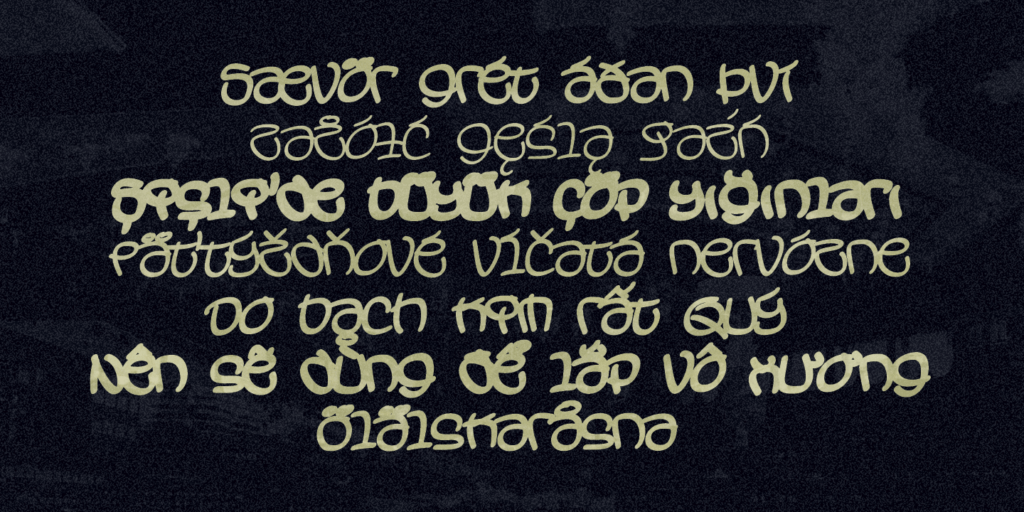 Sævör grét áðan því
Zażółć gęślą jaźń
Şişli'de büyük çöp yığınları
Päťtýždňové vĺčatá nervózne
Do bạch kim rất quý
nên sẽ dùng để lắp vô xương
ölälskaråsna